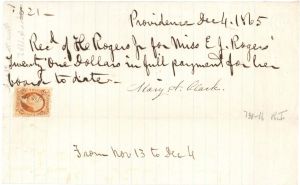 Providence Dec 4. 1865
Rec'd of H Rogers Jr for Miss E. J. Rogers'
Twenty One Dollars in full payment for her
board to date –
Mary A. Clark.
From Nov 13 to Dec 4